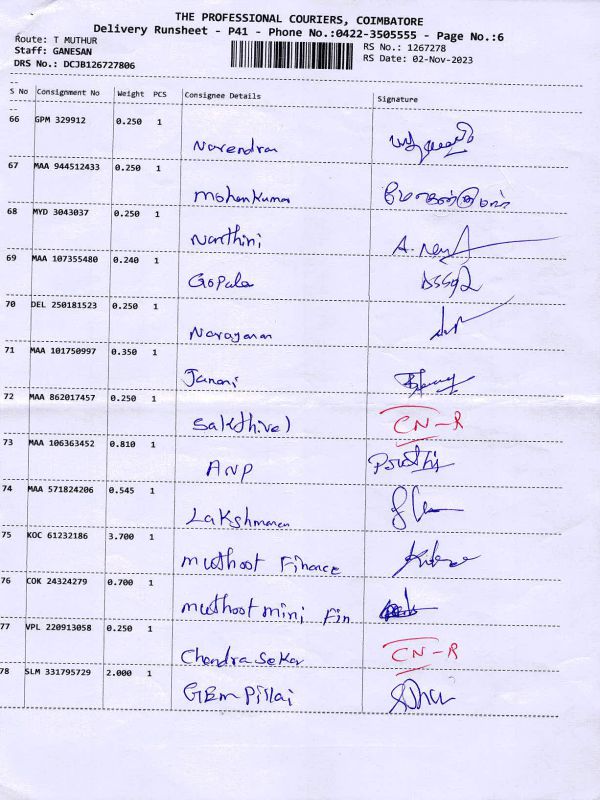 THE PROFESSIONAL COURIERS, COIMBATORE
Delivery Runsheet - P41 - Phone No.:0422-3505555 - Page No.:6
Route: T MUTHUR RS No.: 1267278
Staff: GANESAN RS Date: 02-Nov-2023
DRS No.: DCJB126727806
S No Consignment No Weight PCS Consignee Details Signature
66 GPM 329912 0.250 1
Narendran
67 MAA 944512433 0.250 1
Mohankumar மோகன்குமார்
68 MYD 3043037 0.250 1
Nanthini
69 MAA 107355480 0.240 1
Gopala
70 DEL 250181523 0.250 1
Narayanan
71 MAA 101750997 0.350 1
Janani
72 MAA 862017457 0.250 1
Sakthivel CN-R
73 MAA 106363452 0.810 1
ANP
74 MAA 571824206 0.545 1
Lakshmanan
75 KOC 61232186 3.700 1
Muthoot Finance
76 COK 24324279 0.700 1
Muthoot mini Fin
77 VPL 220913058 0.250 1
Chandra Sekar CN-R
78 SLM 331795729 2.000 1
GBM Pillai